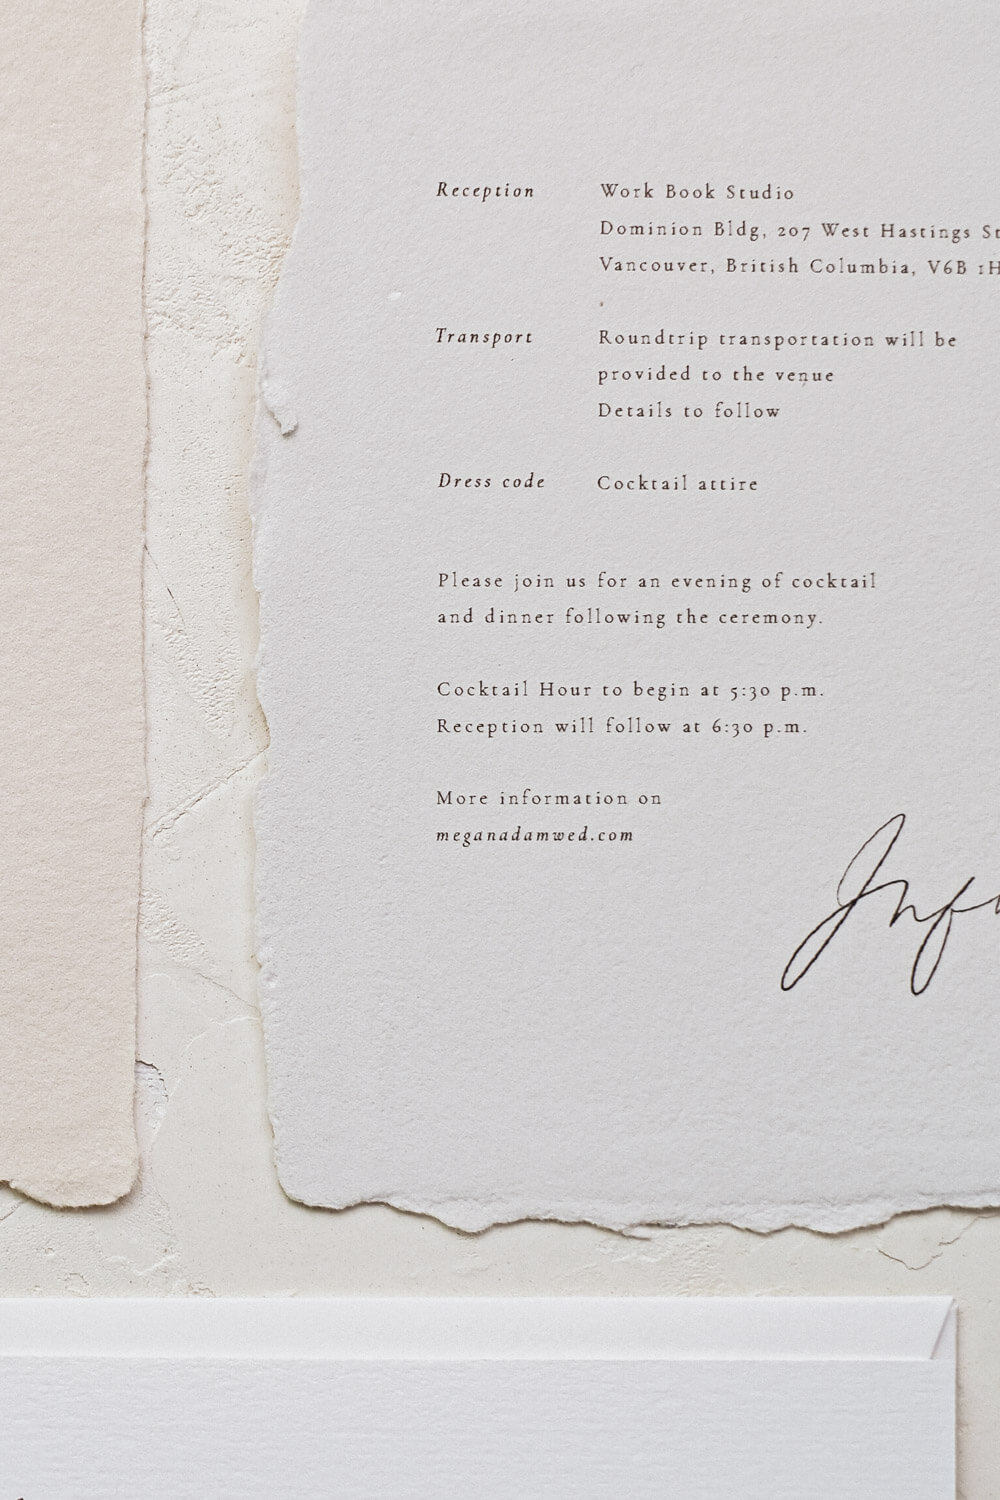 Reception
Work Book Studio
Dominion Bldg, 207 West Hastings St
Vancouver, British Columbia, V6B 1H
Transport
Roundtrip transportation will be
provided to the venue
Details to follow
Dress code
Cocktail attire
Please join us for an evening of cocktail
and dinner following the ceremony.
Cocktail Hour to begin at 5:30 p.m.
Reception will follow at 6:30 p.m.
More information on
meganadamwed.com
Inf